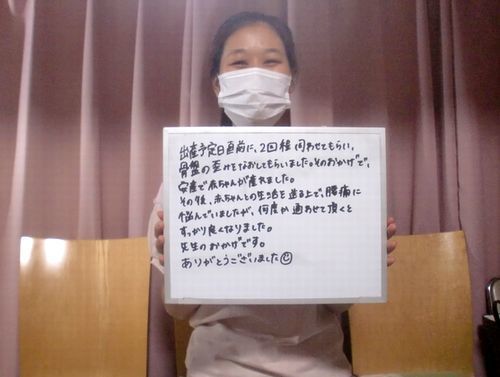 出産予定日直前に、2回程伺わせてもらい、
骨盤の歪みをなおしてもらいました。そのおかげで、
安産で赤ちゃんが産れました。
その後、赤ちゃんとの生活を送る上で、腰痛に
悩んでいましたが、何度か通わせて頂くと
すっかり良くなりました。
先生のおかげです。
ありがとうございました